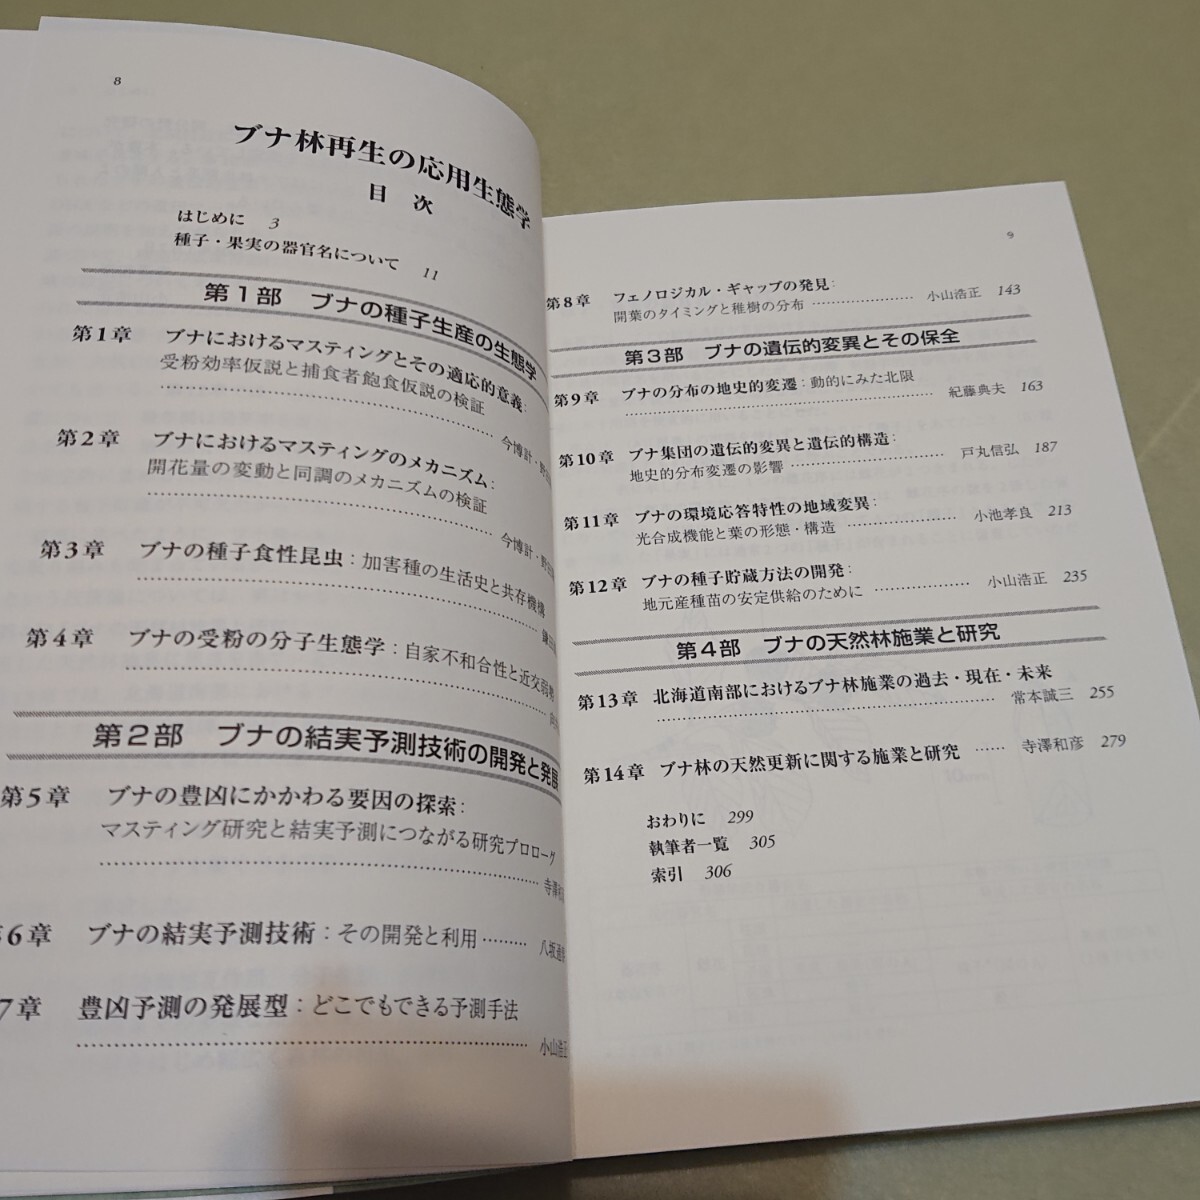 8
ブナ林再生の応用生態学
目次
はじめに 3
種子・果実の器官名について 11
第1部 ブナの種子生産の生態学
第1章 ブナにおけるマスティングとその適応的意義:
受粉効率仮説と捕食者飽食仮説の検証
今博計・野
第2章 ブナにおけるマスティングのメカニズム:
開花量の変動と同調のメカニズムの検証
今博計・野
第3章 ブナの種子食性昆虫:加害種の生活史と共存機構
鎌田
第4章 ブナの受粉の分子生態学:自家不和合性と近交弱勢
第2部 ブナの結実予測技術の開発と発展
第5章 ブナの豊凶にかかわる要因の探索:
マスティング研究と結実予測につながる研究プロローグ
寺澤
6章 ブナの結実予測技術:その開発と利用 八坂通
7章 豊凶予測の発展型:どこでもできる予測手法
小山浩正
9
第8章 フェノロジカル・ギャップの発見:
開葉のタイミングと稚樹の分布 小山浩正 143
第3部 ブナの遺伝的変異とその保全
第9章 ブナの分布の地史的変遷:動的にみた北限
紀藤典夫 163
第10章 ブナ集団の遺伝的変異と遺伝的構造:
地史的分布変遷の影響 戸丸信弘 187
第11章 ブナの環境応答特性の地域変異:
光合成機能と葉の形態・構造 小池孝良 213
第12章 ブナの種子貯蔵方法の開発:
地元産種苗の安定供給のために 小山浩正 235
第4部 ブナの天然林施業と研究
第13章 北海道南部におけるブナ林施業の過去・現在・未来
常本誠三 255
第14章 ブナ林の天然更新に関する施業と研究 寺澤和彦 279
おわりに 299
執筆者一覧 305
索引 306